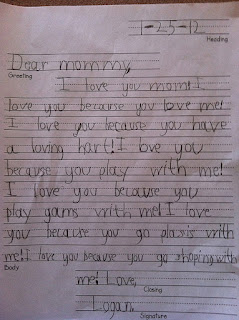 1-25-12
Heading
Dear mommy,
Greeting
I love you mom! I
love you because you love me!
I love you because you have
a loving hart! I love you
because you play with me!
I love you because you
play gams with me! I love
you because you go places with
me! I love you because you go shoping with
Body
me! Love,
Closing
Logan,
Signature